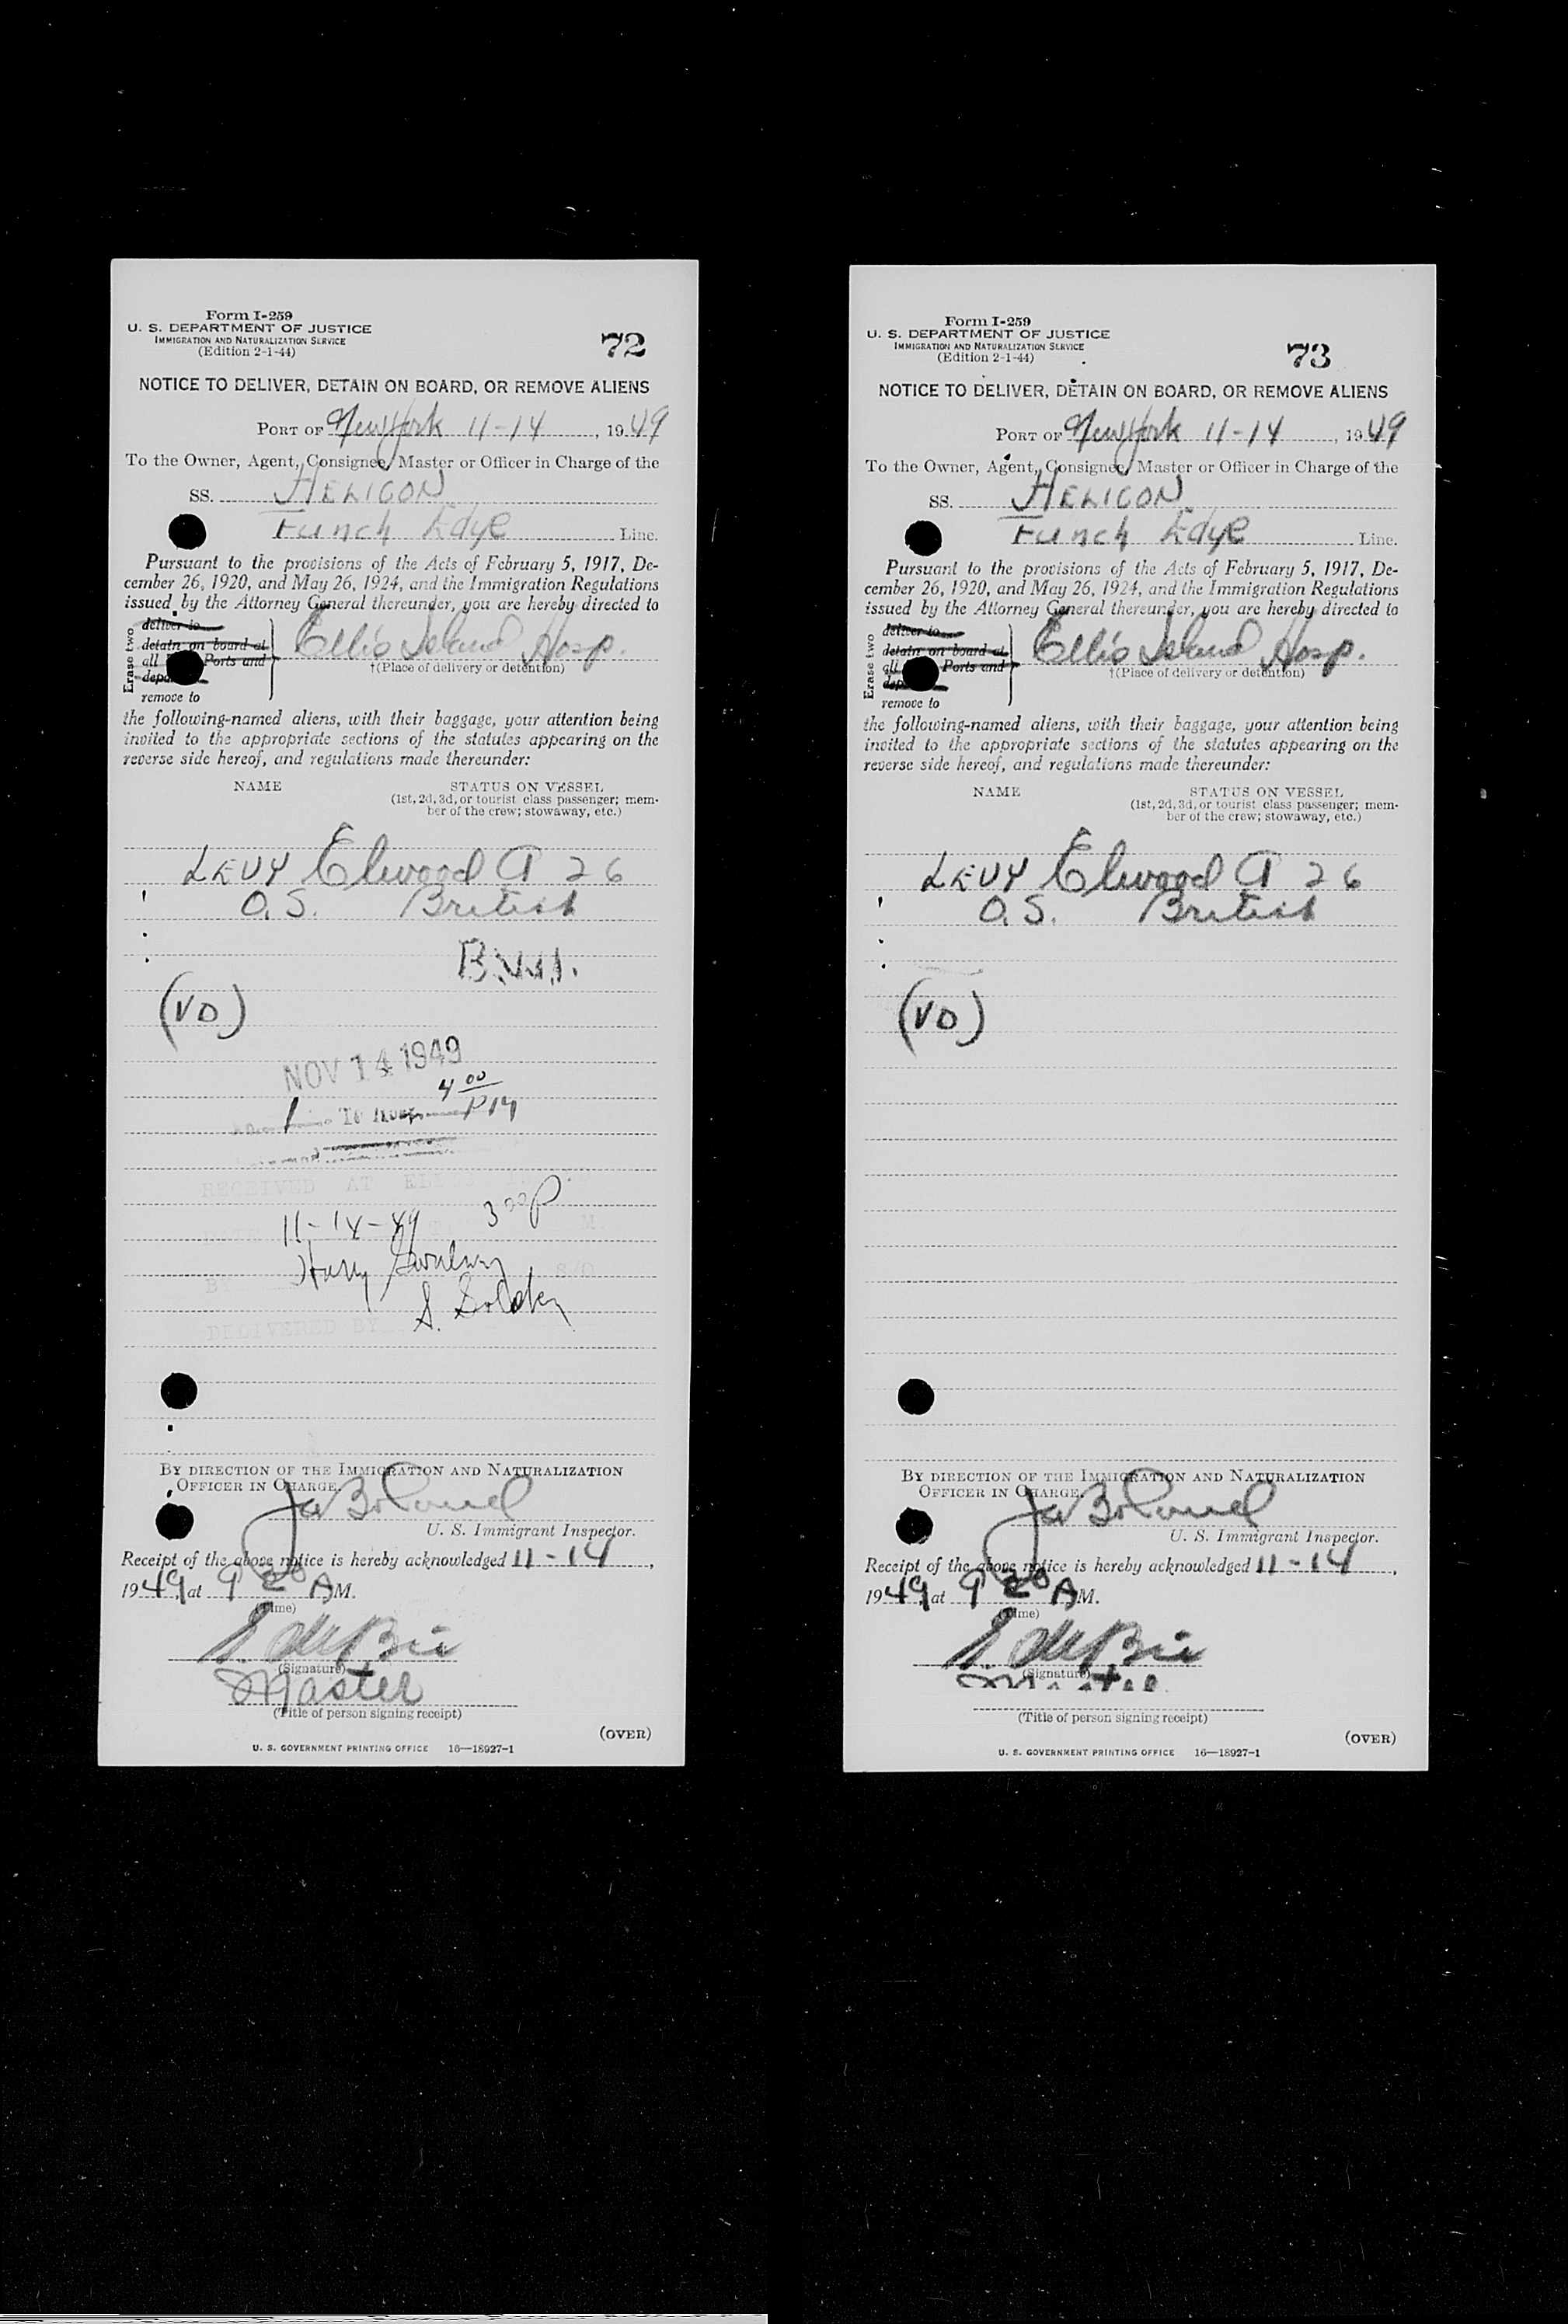 Form I-259
U. S. DEPARTMENT OF JUSTICE
IMMIGRATION AND NATURALIZATION SERVICE
(Edition 2-1-44)
72
NOTICE TO DELIVER, DETAIN ON BOARD, OR REMOVE ALIENS
PORT OF New York 11-14, 1949
To the Owner, Agent, Consignee, Master or Officer in Charge of the
SS. HELICON
Funch Edye Line.
Pursuant to the provisions of the Acts of February 5, 1917, De-
cember 26, 1920, and May 26, 1924, and the Immigration Regulations
issued by the Attorney General thereunder, you are hereby directed to
Erase two
deliver to
detain on board at
all Ports and
remove to
Ellis Island Hosp.
†(Place of delivery or detention)
the following-named aliens, with their baggage, your attention being
invited to the appropriate sections of the statutes appearing on the
reverse side hereof, and regulations made thereunder:
NAME STATUS ON VESSEL
(1st, 2d, 3d, or tourist class passenger; mem-
ber of the crew; stowaway, etc.)
LEVY Elwood A 26
O.S. British
B.W.I.
(VD)
NOV 14 1949
4 00 PM
1
RECEIVED AT
11-14-49 3 00 P
M.
BY Harry
S.
DELIVERED BY
BY DIRECTION OF THE IMMIGRATION AND NATURALIZATION
OFFICER IN CHARGE.
U. S. Immigrant Inspector.
Receipt of the above notice is hereby acknowledged 11-14,
1949, at 9 20 A M.
(Time)
S. de Bie
(Signature)
Master
(Title of person signing receipt)
(OVER)
U. S. GOVERNMENT PRINTING OFFICE 16—18927-1
Form I-259
U. S. DEPARTMENT OF JUSTICE
IMMIGRATION AND NATURALIZATION SERVICE
(Edition 2-1-44)
73
NOTICE TO DELIVER, DETAIN ON BOARD, OR REMOVE ALIENS
PORT OF New York 11-14, 1949
To the Owner, Agent, Consignee, Master or Officer in Charge of the
SS. HELICON
Funch Edye Line.
Pursuant to the provisions of the Acts of February 5, 1917, De-
cember 26, 1920, and May 26, 1924, and the Immigration Regulations
issued by the Attorney General thereunder, you are hereby directed to
Erase two
deliver to
detain on board at
all Ports and
remove to
Ellis Island Hosp.
†(Place of delivery or detention)
the following-named aliens, with their baggage, your attention being
invited to the appropriate sections of the statutes appearing on the
reverse side hereof, and regulations made thereunder:
NAME STATUS ON VESSEL
(1st, 2d, 3d, or tourist class passenger; mem-
ber of the crew; stowaway, etc.)
LEVY Elwood A 26
O.S. British
(VD)
BY DIRECTION OF THE IMMIGRATION AND NATURALIZATION
OFFICER IN CHARGE.
U. S. Immigrant Inspector.
Receipt of the above notice is hereby acknowledged 11-14,
1949, at 9 20 A M.
(Time)
S. de Bie
(Signature)
Master
(Title of person signing receipt)
(OVER)
U. S. GOVERNMENT PRINTING OFFICE 16—18927-1